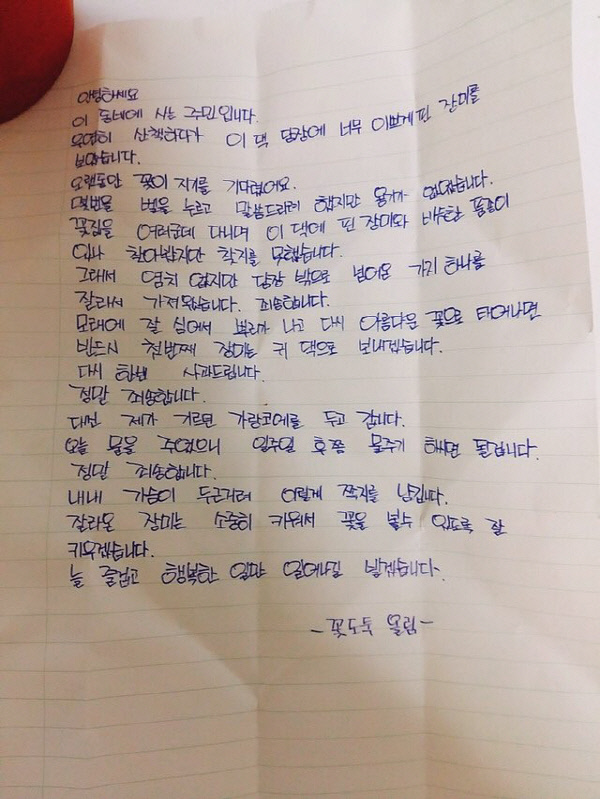 안녕하세요
이 동네에 사는 주민입니다.
우연히 산책하다가 이 댁 담장에 너무 이쁘게 핀 장미를
보았습니다.
오랫동안 꽃이 지기를 기다렸어요.
몇번을 벨을 누르고 말씀드리려 했지만 용기가 없었습니다.
꽃집을 여러군데 다니며 이 댁에 핀 장미와 비슷한 품종이
있나 찾아봤지만 찾지를 못했습니다.
그래서 염치 없지만 담장 밖으로 넘어온 가지 하나를
잘라서 가져왔습니다. 죄송합니다.
모래에 잘 심어서 뿌리가 나고 다시 아름다운 꽃으로 태어나면
반드시 첫번째 장미는 귀 댁으로 보내겠습니다.
다시 한번 사과드립니다.
정말 죄송합니다.
대신 제가 기르던 카랑코에를 두고 갑니다.
오늘 물을 주었으니 일주일 후쯤 물주기 하시면 될겁니다.
정말 죄송합니다.
내내 가슴이 두근거려 이렇게 쪽지를 남깁니다.
잘라온 장미는 소중히 키워서 꽃을 볼수 있도록 잘
키우겠습니다.
늘 즐겁고 행복한 일만 일어나길 빌겠습니다.
-꽃도둑 올림-